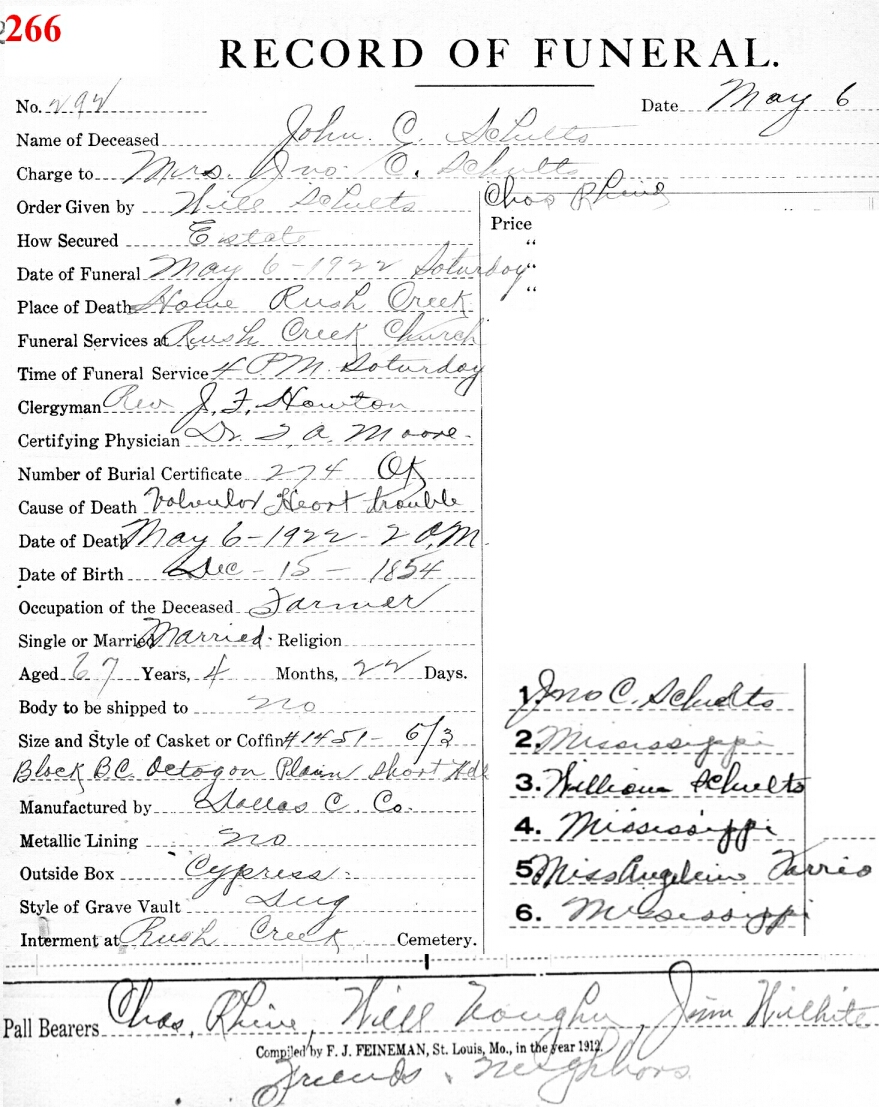 266
RECORD OF FUNERAL.
No. 292 Date May 6
Name of Deceased John. C. Schults
Charge to Mrs. Jno. C. Schults
Order Given by Will Schults Chas Rhine
Price
How Secured Estate "
Date of Funeral May 6-1922 Saturday "
Place of Death Home Rush Creek "
Funeral Services at Rush Creek Church
Time of Funeral Service 4 PM. Saturday
Clergyman Rev J. F. Howton
Certifying Physician Dr. A. Moore.
Number of Burial Certificate 274 Ok
Cause of Death Valvular Heart trouble
Date of Death May 6-1922-2 AM.
Date of Birth Dec-15-1854
Occupation of the Deceased Farmer
Single or Married Married. Religion
Aged 67 Years, 4 Months, 22 Days.
Body to be shipped to no
Size and Style of Casket or Coffin #1451- 6/3
Black B.C. Octogon Plain Short Hdl
Manufactured by Dallas C. Co.
Metallic Lining no
Outside Box Cypress.
Style of Grave Vault Dug
Interment at Rush Creek Cemetery.
1. Jno C. Schults
2. Mississippi
3. William Schults
4. Mississippi
5 Miss Angelein
6. Mississippi
Pall Bearers Chas, Rhine, Will Vaughn, Jim Wilhite
Compiled by F. J. FEINEMAN, St. Louis, Mo., in the year 1912.
Friends & Neighbors.